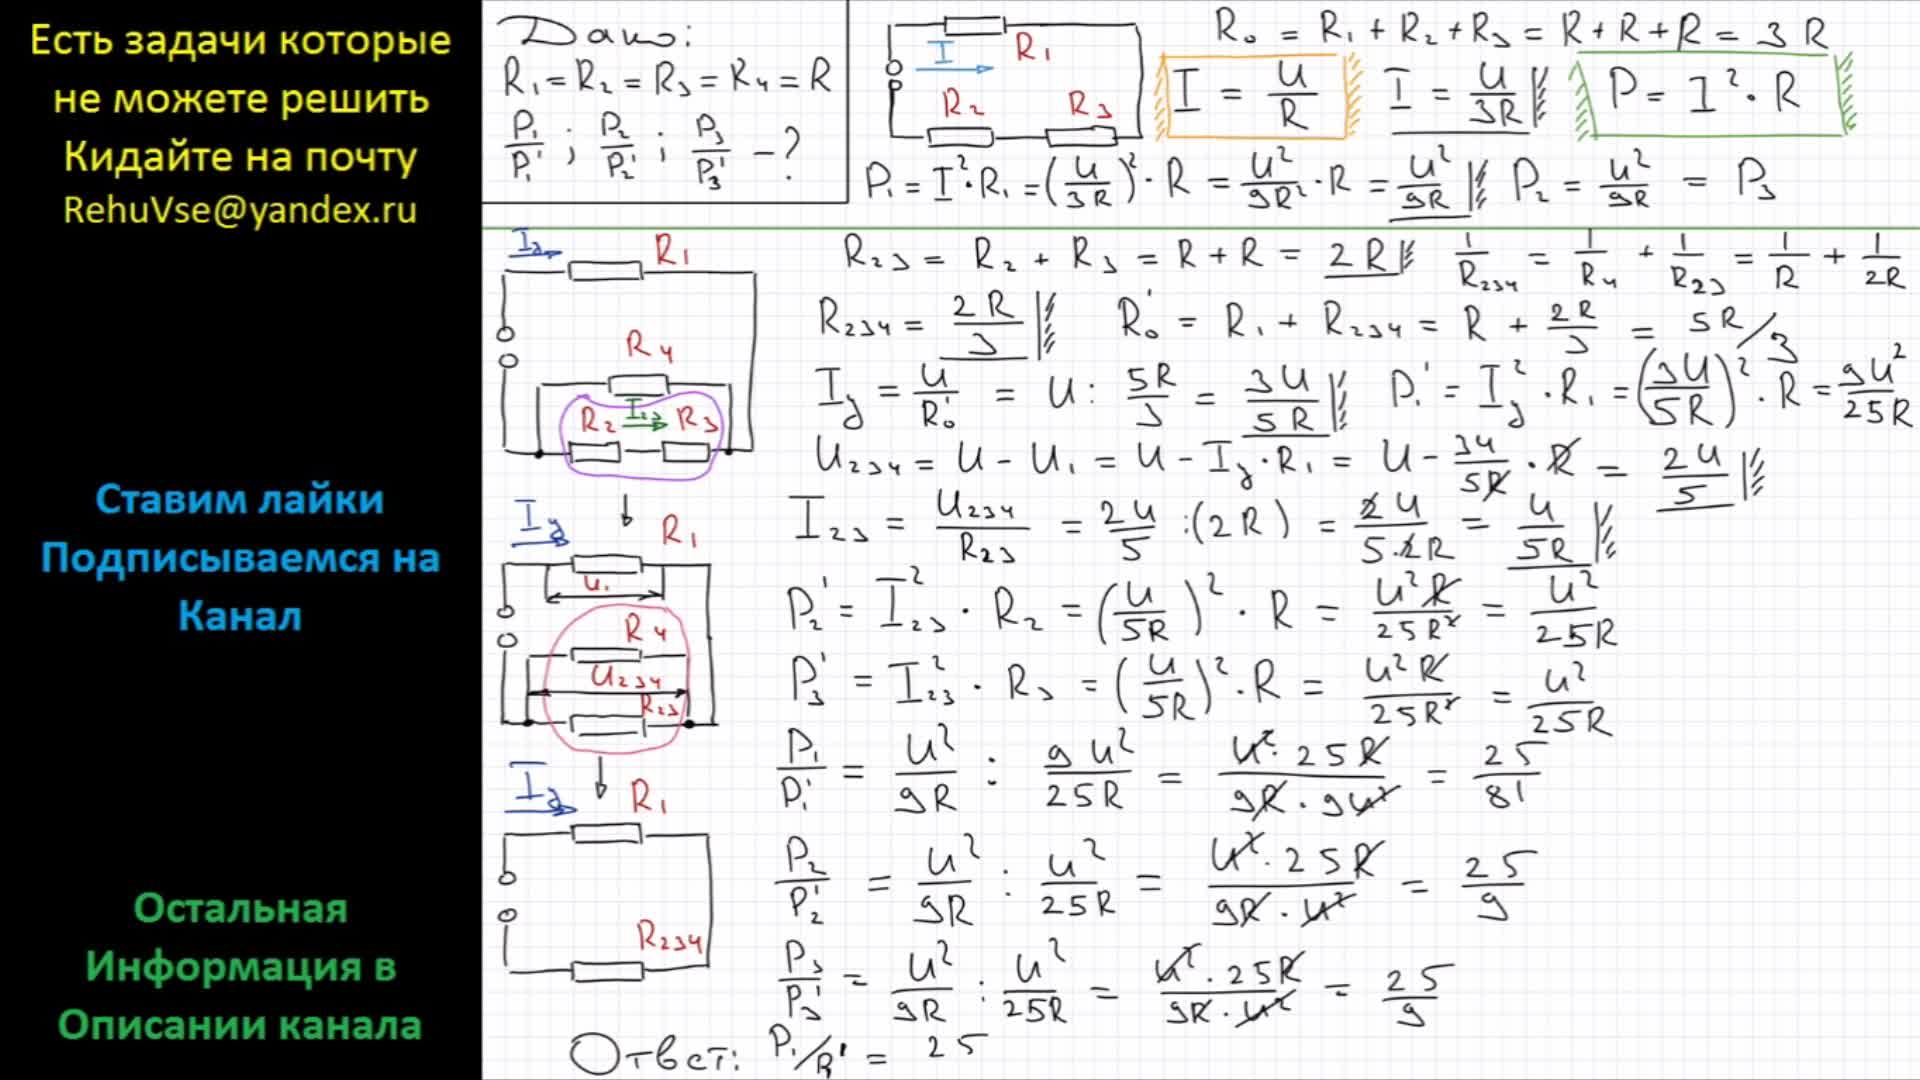 Есть задачи которые
не можете решить
Кидайте на почту
RehuVse@yandex.ru
Ставим лайки
Подписываемся на
Канал
Остальная
Информация в
Описании канала
Дано:
R₁ = R₂ = R₃ = R₄ = R
P₁/P₁' ; P₂/P₂' ; P₃/P₃' – ?
I R₁
R₂ R₃
R₀ = R₁ + R₂ + R₃ = R + R + R = 3R
I = U/R I = U/3R P = I² · R
P₁ = I² · R₁ = (U/3R)² · R = U²/9R² · R = U²/9R P₂ = U²/9R = P₃
Iд R₁
R₄
R₂ I₂₃ R₃
R₂₃ = R₂ + R₃ = R + R = 2R 1/R₂₃₄ = 1/R₄ + 1/R₂₃ = 1/R + 1/2R
R₂₃₄ = 2R/3 R₀' = R₁ + R₂₃₄ = R + 2R/3 = 5R/3
Iд = U/R₀' = U : 5R/3 = 3U/5R P₁' = Iд² · R₁ = (3U/5R)² · R = 9U²/25R
U₂₃₄ = U – U₁ = U – Iд · R₁ = U – 3U/5R · R = 2U/5
Iд R₁
U₁
R₄
U₂₃₄
R₂₃
I₂₃ = U₂₃₄/R₂₃ = 2U/5 : (2R) = 2U/5·2R = U/5R
P₂' = I₂₃² · R₂ = (U/5R)² · R = U²R/25R² = U²/25R
P₃' = I₂₃² · R₃ = (U/5R)² · R = U²R/25R² = U²/25R
Iд R₁
R₂₃₄
P₁/P₁' = U²/9R : 9U²/25R = U²·25R/9R·9U² = 25/81
P₂/P₂' = U²/9R : U²/25R = U²·25R/9R·U² = 25/9
P₃/P₃' = U²/9R : U²/25R = U²·25R/9R·U² = 25/9
Ответ: P₁/P₁' = 25